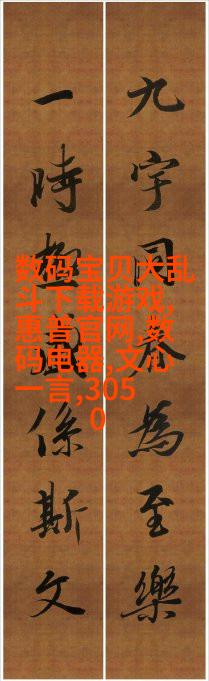 九宇同為至樂
一時極係斯文
数码宝贝大乱
斗下载游戏,
惠普官网,数
码电器,文心
一言,305
0